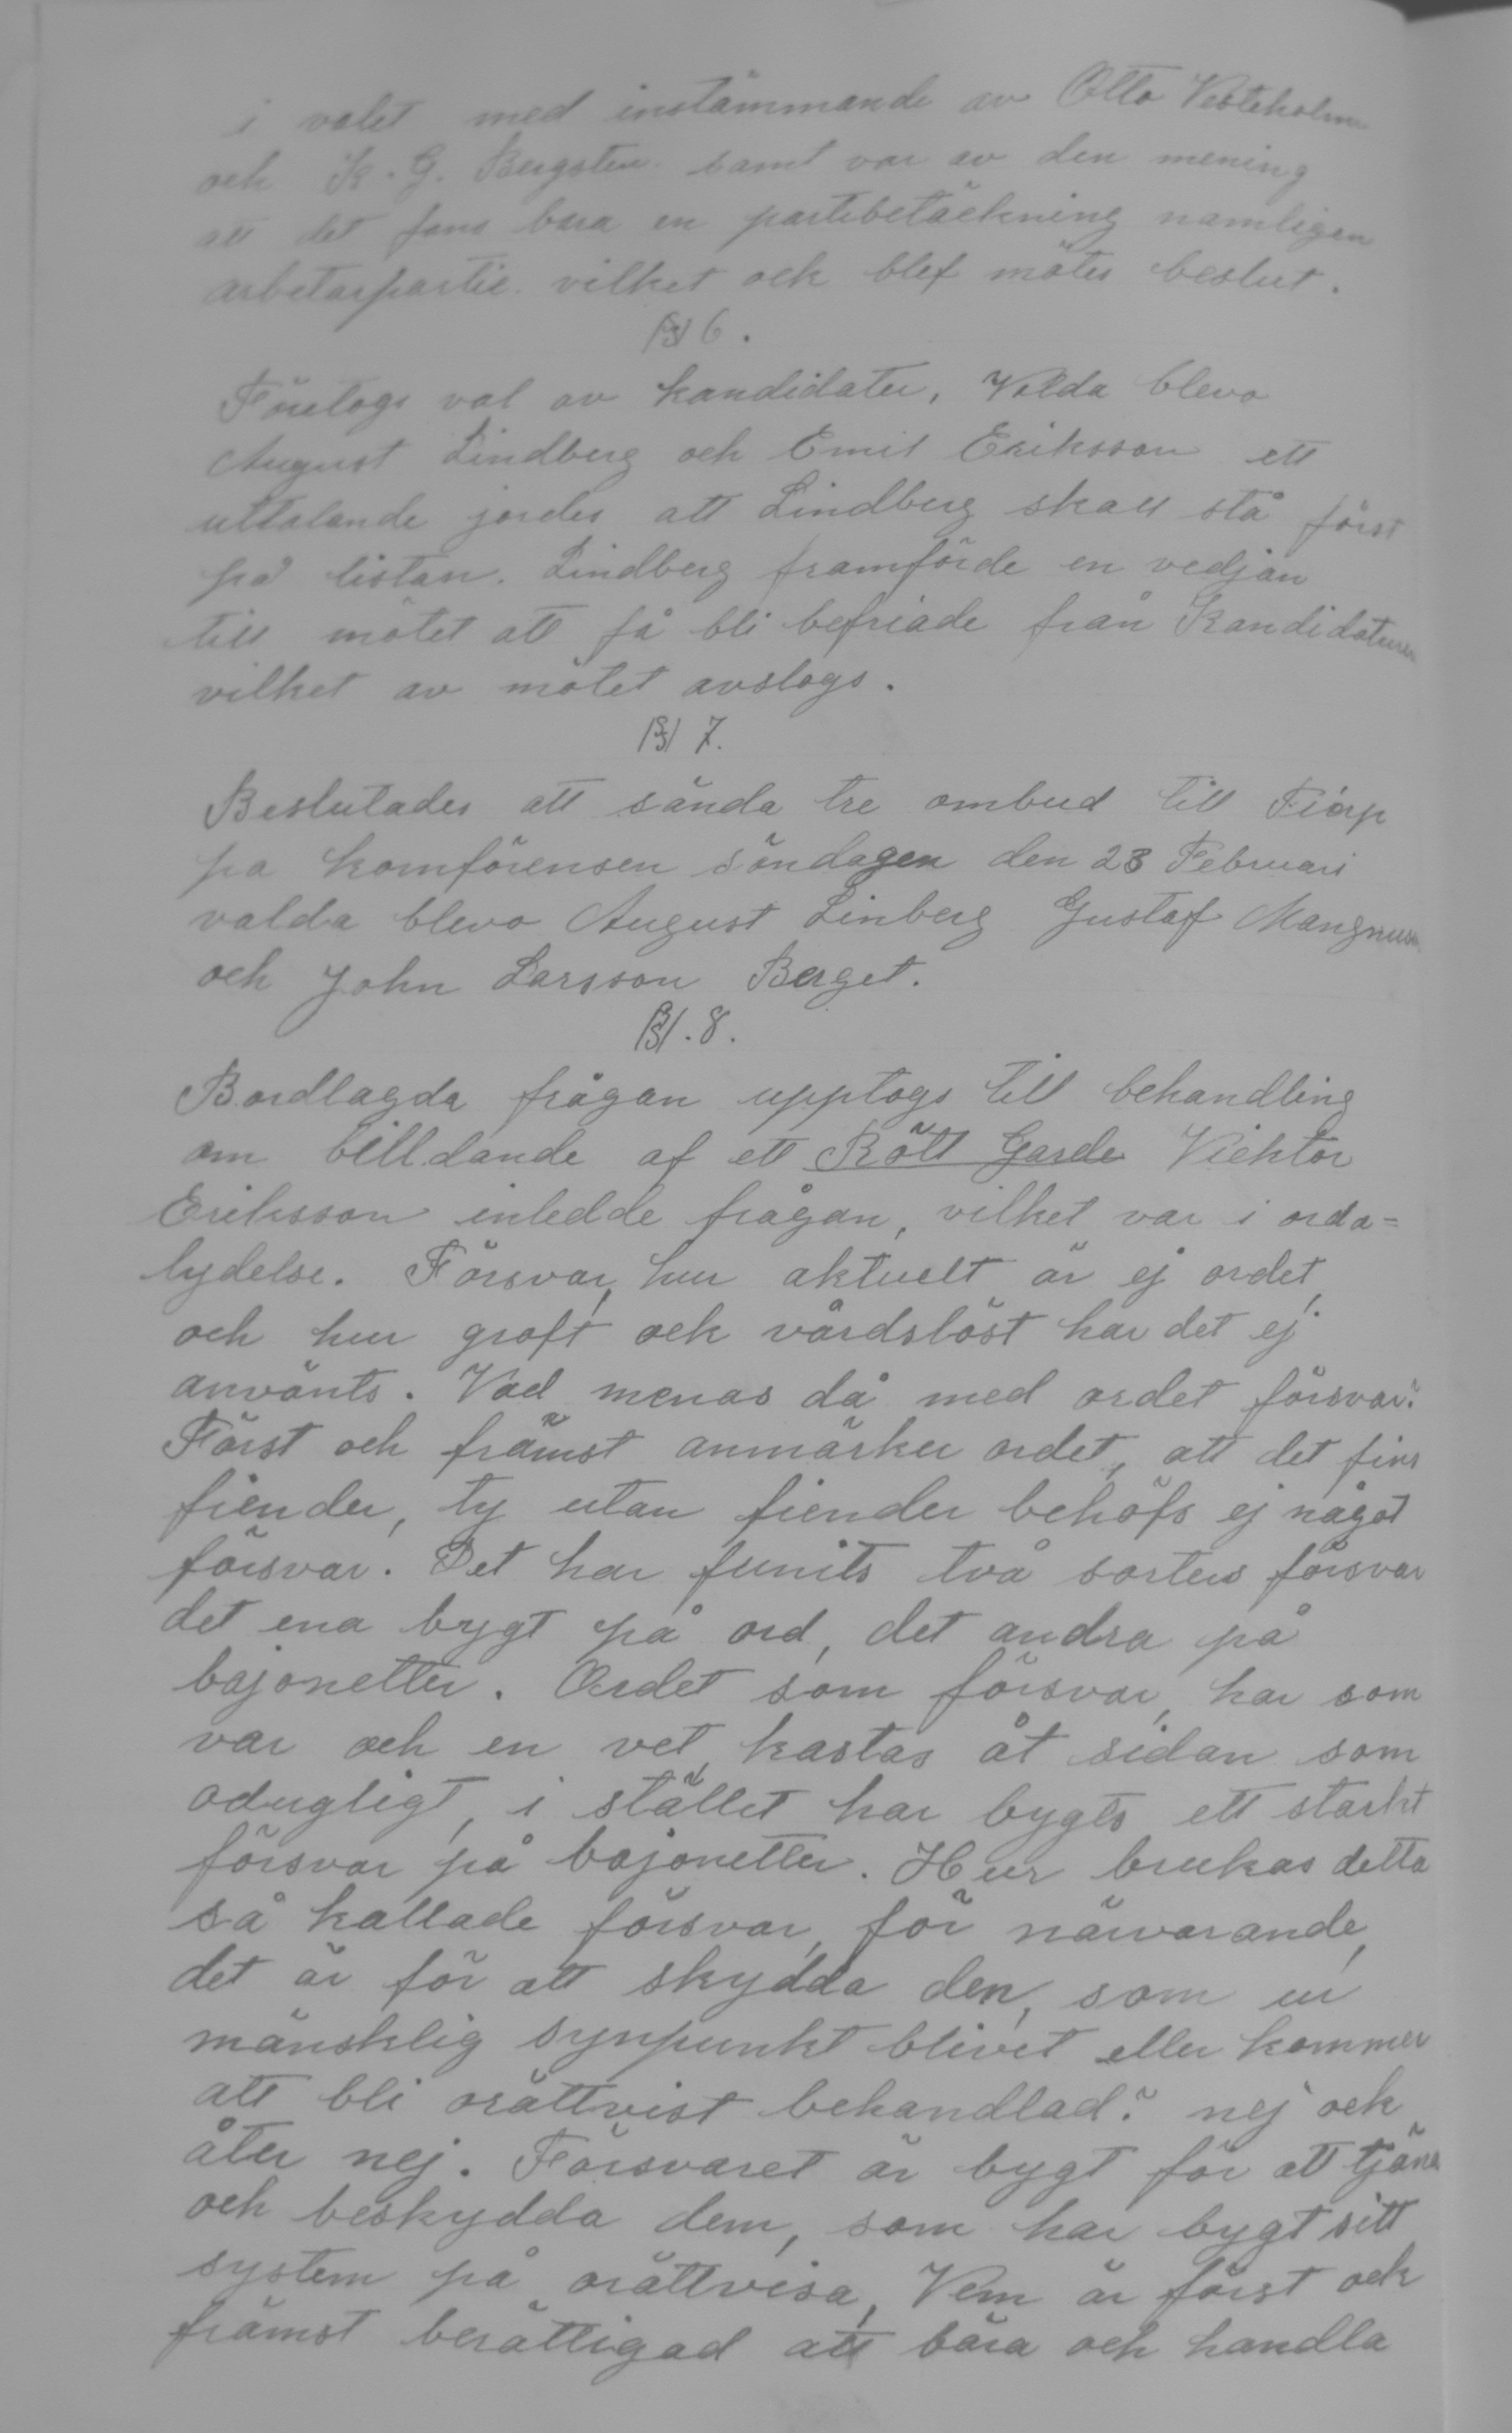 i valet med instämmande av Otto Vesteholm
och K. G. Bergsten. samt var av den mening
att det fans bara en partibetäckning namligen
arbetarpartie. vilket och blef mötes beslut.
§ 6.
Företogs val av kandidater, Valda blevo
August Lindberg och Emil Eriksson ett
uttalande jordes att Lindberg skall stå först
på listan. Lindberg framförde en vedjan
till mötet att få bli befriade från Kandidaturen
vilket av mötet avslogs.
§ 7.
Beslutades att sända tre ombud till
pa komförensen söndagen den 23 Februari
valda blevo August Linberg Gustaf
och John Larsson Berget.
§. 8.
Bordlagda frågan upptogs till behandling
om billdande af ett Rött Garde Vicktor
Eriksson inledde frågan, vilket var i orda=
lydelse. Försvar, hur aktuelt är ej ordet,
och hur groft och vårdslöst har det ej
använts. Vad menas då med ordet försvar?
Först och främst anmärker ordet, att det fins
fiender, ty utan fiender behöfs ej något
försvar. Det har funits två sorters försvar
det ena bygt på ord, det andra på
bajonetter. Ordet som försvar, har som
var och en vet, kastas åt sidan som
odugligt, i stället har bygts ett starkt
försvar på bajonetter. Hur brukas detta
så kallade försvar, för närvarande,
det är för att skydda den, som ur
mänsklig synpunkt blivet eller kommer
att bli orättvist behandlad? nej och
åter nej. Försvaret är bygt för att tjäna
och beskydda dem, som har bygt sitt
system på orättvisa, Vem är först och
främst berättigad att bära och handla